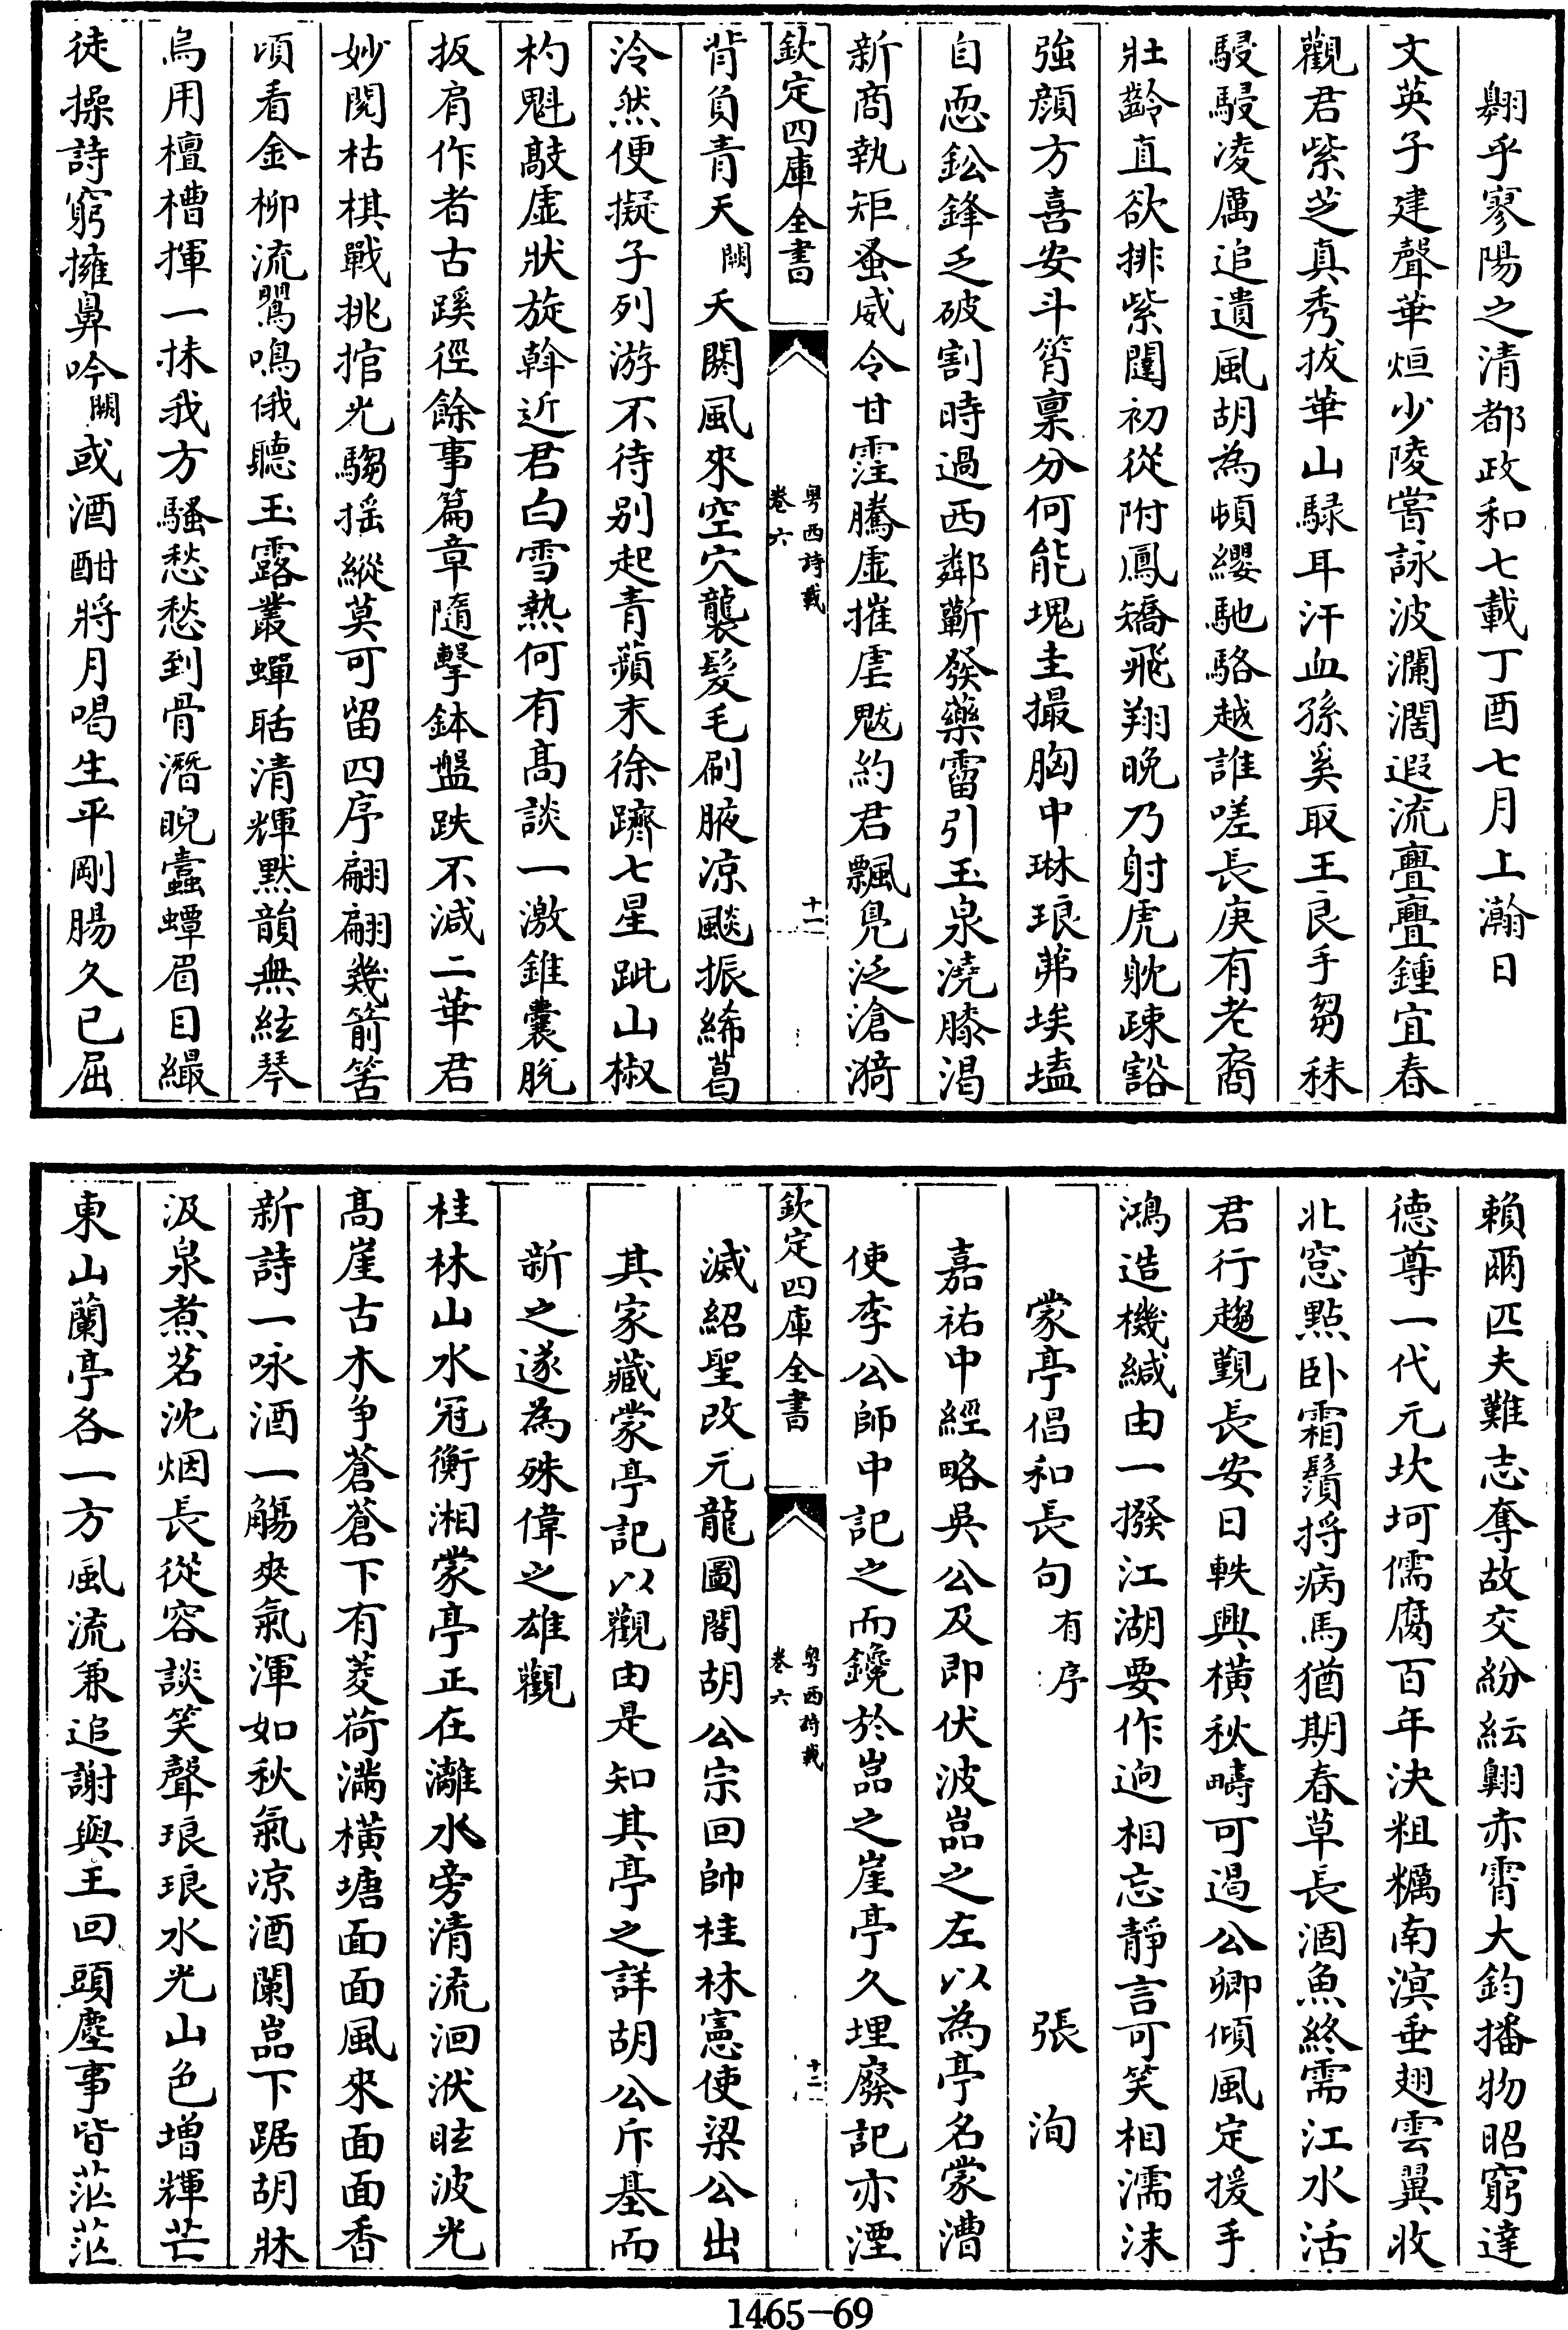 翺乎寥陽之清都政和七載丁酉七月上瀚日
文英子建聲華烜少陵嘗詠波瀾濶遐流亹亹鍾宜春
觀君紫芝真秀拔華山騄耳汗血孫奚取王良手芻秣
駸駸凌厲追遺風胡為頓纓馳駱越誰嗟長庚有老裔
壯齡直欲排紫闥初從附鳳矯飛翔晚乃射虎躭疎豁
強顔方喜安斗筲稟分何能塊圭撮胸中琳琅茀埃壒
自恧鈆鋒乏破割時過西鄰蘄發藥雷引玉泉澆膝渴
新商執矩蚤威令甘霪騰虛摧虐魃約君飄凫泛滄漪
欽定四庫全書
粤西詩載
卷六
十一
背負青天闕天闕風來空穴襲髮毛刷腋凉颷振絺葛
泠然便擬子列游不待别起青蘋末徐躋七星跐山椒
杓魁敲虛狀旋斡近君白雪熱何有髙談一激錐囊脫
扳肩作者古蹊徑餘事篇章隨擊鉢盤跌不減二華君
妙閱枯棋戰挑捾光騶揺縱莫可留四序翩翩幾箭筈
頃看金柳流鸎鳴俄聽玉露叢蟬聒清輝默韻無絃琴
烏用檀槽揮一抹我方騷愁愁到骨潛睨蠹蟫眉目纈
徒操詩窮擁鼻吟闕或酒酣將月喝生平剛腸久已屈
賴爾匹夫難志奪故交紛紜翺赤霄大鈞播物昭窮達
德尊一代元坎坷儒腐百年決粗糲南溟垂翅雲翼收
北窓點卧霜鬚捋病馬猶期春草長涸魚終需江水活
君行趨覲長安日軼興橫秋疇可遏公卿傾風定援手
鴻造機緘由一撥江湖要作逈相忘靜言可笑相濡沫
蒙亭倡和長句有序　張洵
嘉祐中經略吳公及即伏波嵓之左以為亭名蒙漕
使李公師中記之而鑱於嵓之崖亭久埋廢記亦湮
欽定四庫全書
粤西詩載
卷六
十二
滅紹聖改元龍圖閣胡公宗回帥桂林憲使梁公出
其家藏蒙亭記以觀由是知其亭之詳胡公斥基而
新之遂為殊偉之雄觀
桂林山水冠衡湘蒙亭正在灕水旁清流洄洑眩波光
髙崖古木争蒼蒼下有菱荷滿橫塘面面風來面面香
新詩一咏酒一觴爽氣渾如秋氣凉酒闌嵓下踞胡牀
汲泉煮茗沈烟長從容談笑聲琅琅水光山色增輝芒
東山蘭亭各一方風流兼追謝與王回頭塵事皆茫茫
1465-69